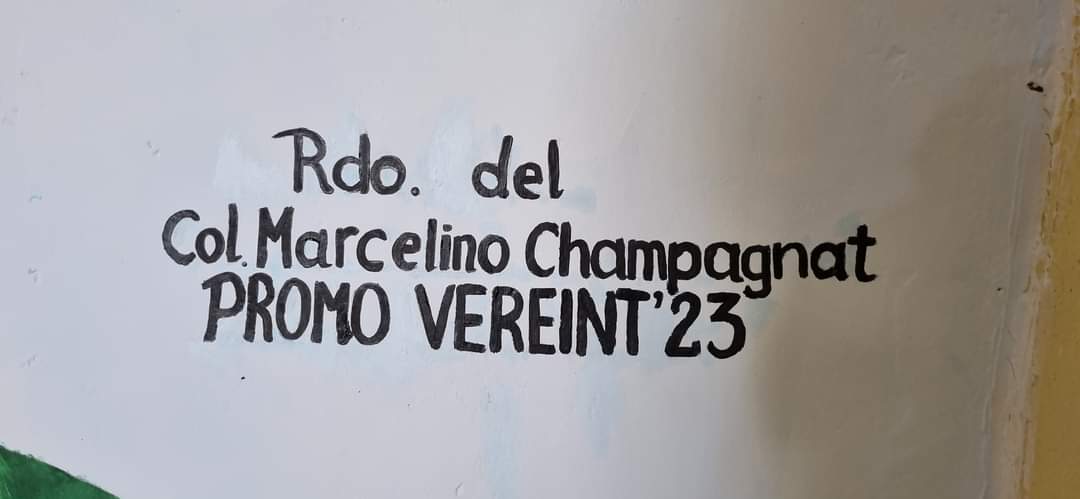 Rdo. del
Col. Marcelino Champagnat
PROMO VEREINT'23